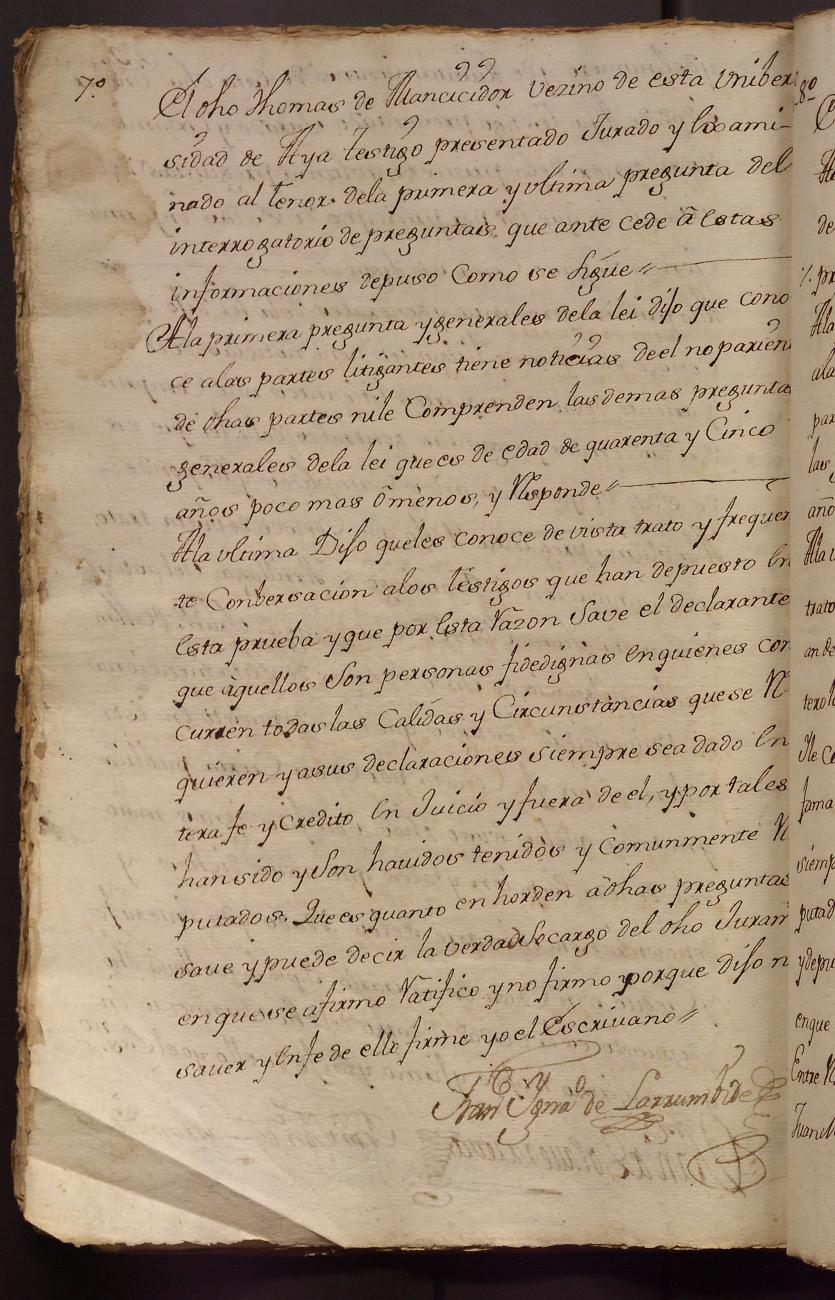 7.º
El dho Thomas de Mancicidor vezino de esta Vniber
sidad de Aya testigo presentado Jurado y Exami-
nado al tenor dela primera y vltima pregunta del
interrogatorio de preguntas que ante cede â Estas
informaciones depuso Como se sigue
Ala primera pregunta y generales dela lei dijo que cono
ce alas partes litigantes tiene noticias deel no parien
de dhas partes nile Comprenden las demas pregunta
generales dela lei que es de edad de quarenta y Cinco
años poco mas ô menos, y Responde
Ala vltima Dijo queles conoce de vista trato y frequen
te Conbersacion alos testigos que han depuesto En
Esta prueba y que por Esta Razon Save el declarante
que aquellos Son personas fidedignas En quienes con
curren todas las Calidas y Circunstancias que se Re
quieren y asus declaraciones siempre sea dado En
tera fe y Credito En Juicio y fuera de el, y por tales
han sido y Son hauidos tenidos y Comunmente Re
putados. Que es quanto en horden â dhas preguntas
saue y puede decir la verdad Socargo del dho Juram
en que se afirmo Ratifico y no firmo porque dijo n
sauer y En fe de ello firme yo el Escriuano
Fran Ignaº de Larrumbide
8º
Ala
de
pr
Ala
ala
par
las
año
Ala v
trato
an de
tero
Ile Co
fama
siemp
putad
y depu
en que
Entre R
Juan